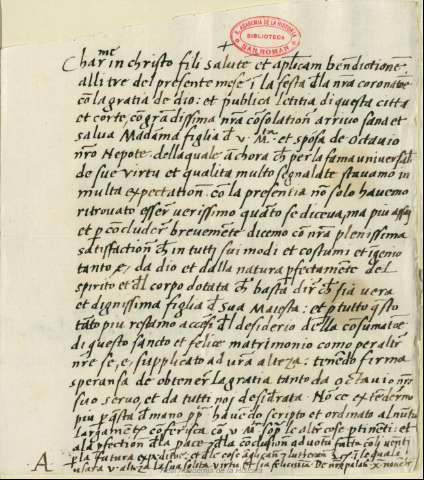 R. ACADEMIA DE LA HISTORIA
BIBLIOTECA
SAN ROMAN
+
Char.me in christo fili salute et apl̃icam benedictione.
alli tre del presente mese ĩ la festa d̃la nr̃a coronatõe
cõ la gratia de dio: et publica letitia di questa citta
et corte, cõ grãdissima nr̃a cõsolation arrivo sana et
salva Madãma figlia d̃ v. M.ta et sposa de Octavio
nr̃o Nepote. della quale ãchora ch̃ per la fama universal
de sue virtu et qualita multo segnalate stavamo in
multa expectation, cõ la presentia nõ solo havemo
ritrovato esser verissimo quãto se diceva, ma piu assai
et p cõcluder brevemẽte dicemo cõ nr̃a plenissima
satisfaction ch̃ in tutti sui modi et costumi et ĩgenio
tanto, e, da dio et dalla natura pfectamẽte del
spirito et d̃l corpo dotata ch̃ basta dir ch̃ sia vera
et dignissima figlia d̃ Sua Maiesta: et p tutto q̃sto
tãto piu restamo accesi d̃l desiderio d̃ella cõsumatõe
di questo sancto et felice matrimonio come per altr
nr̃e se, e, supplicato ad vr̃a alteza: tenẽdo firma
speransa de obtener la gratia tanto da octavio nr̃o
suo servo, et da tutti noi desid̃rata. Nõ ce extẽdermo
piu p q̃sta d̃ mano pp.a havẽdo scripto et ordinato al nũtio
largamẽte cõferisca cõ v. M.ta
la futura
usara v. alteza la sua solita virtu et sia felicissima.
A